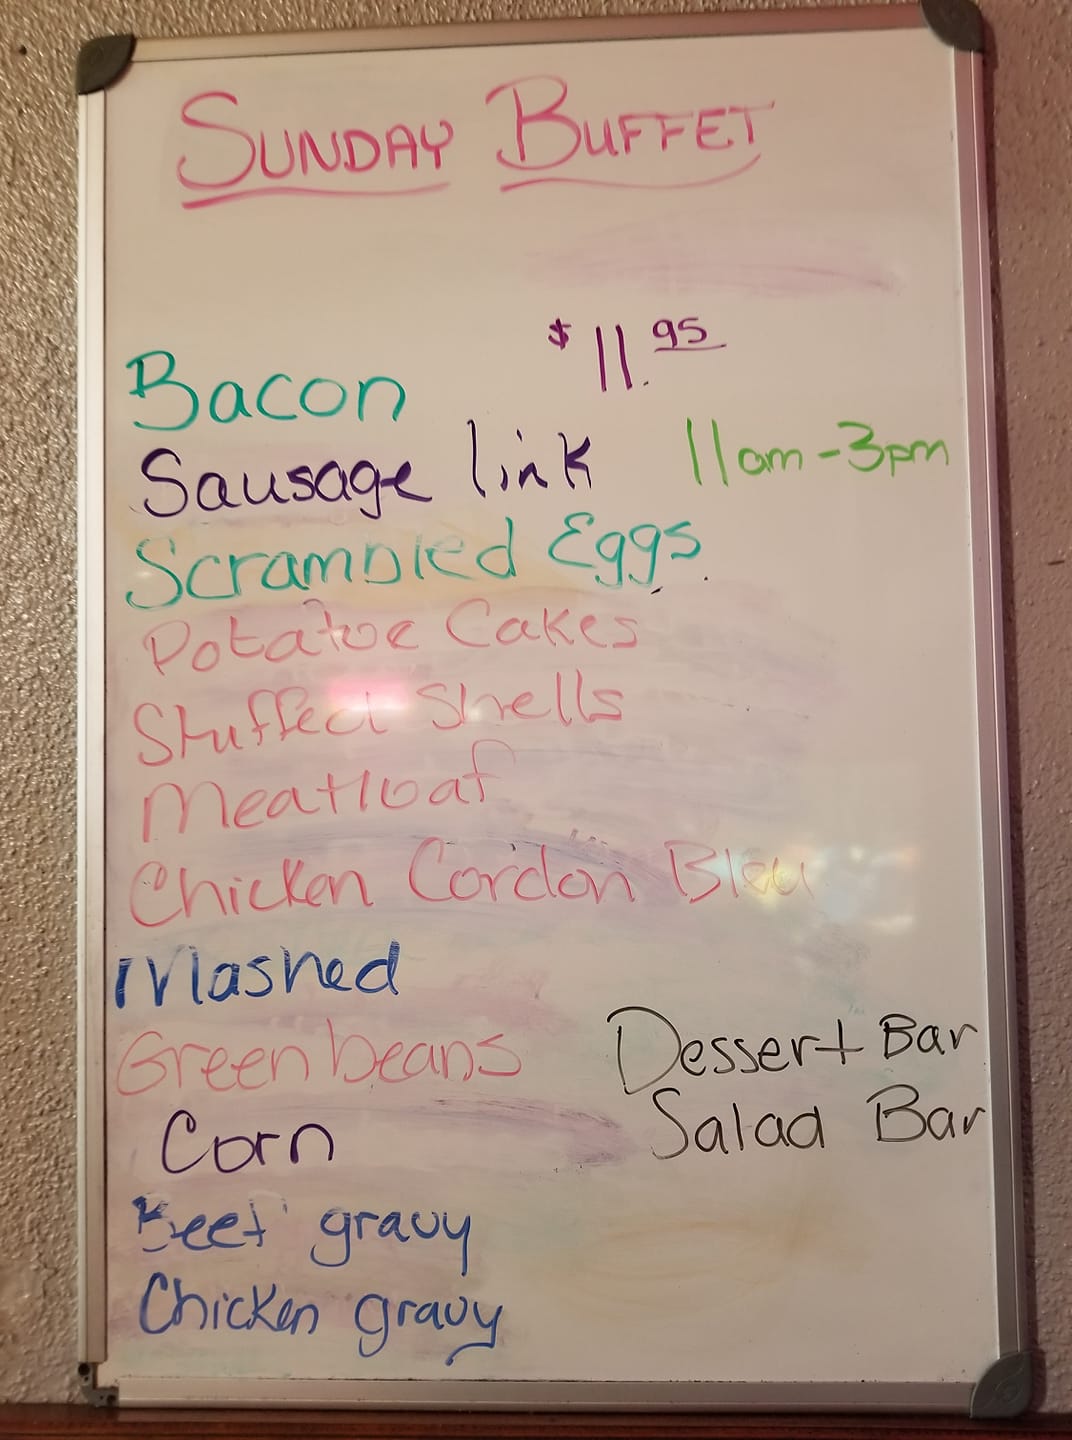 SUNDAY BUFFET
$11.95
Bacon
Sausage link
11am-3pm
Scrambled Eggs
Potatoe Cakes
Stuffed Shells
Meatloaf
Chicken Cordon Bleu
Mashed
Green beans
Dessert Bar
Corn
Salad Bar
Beef gravy
Chicken gravy